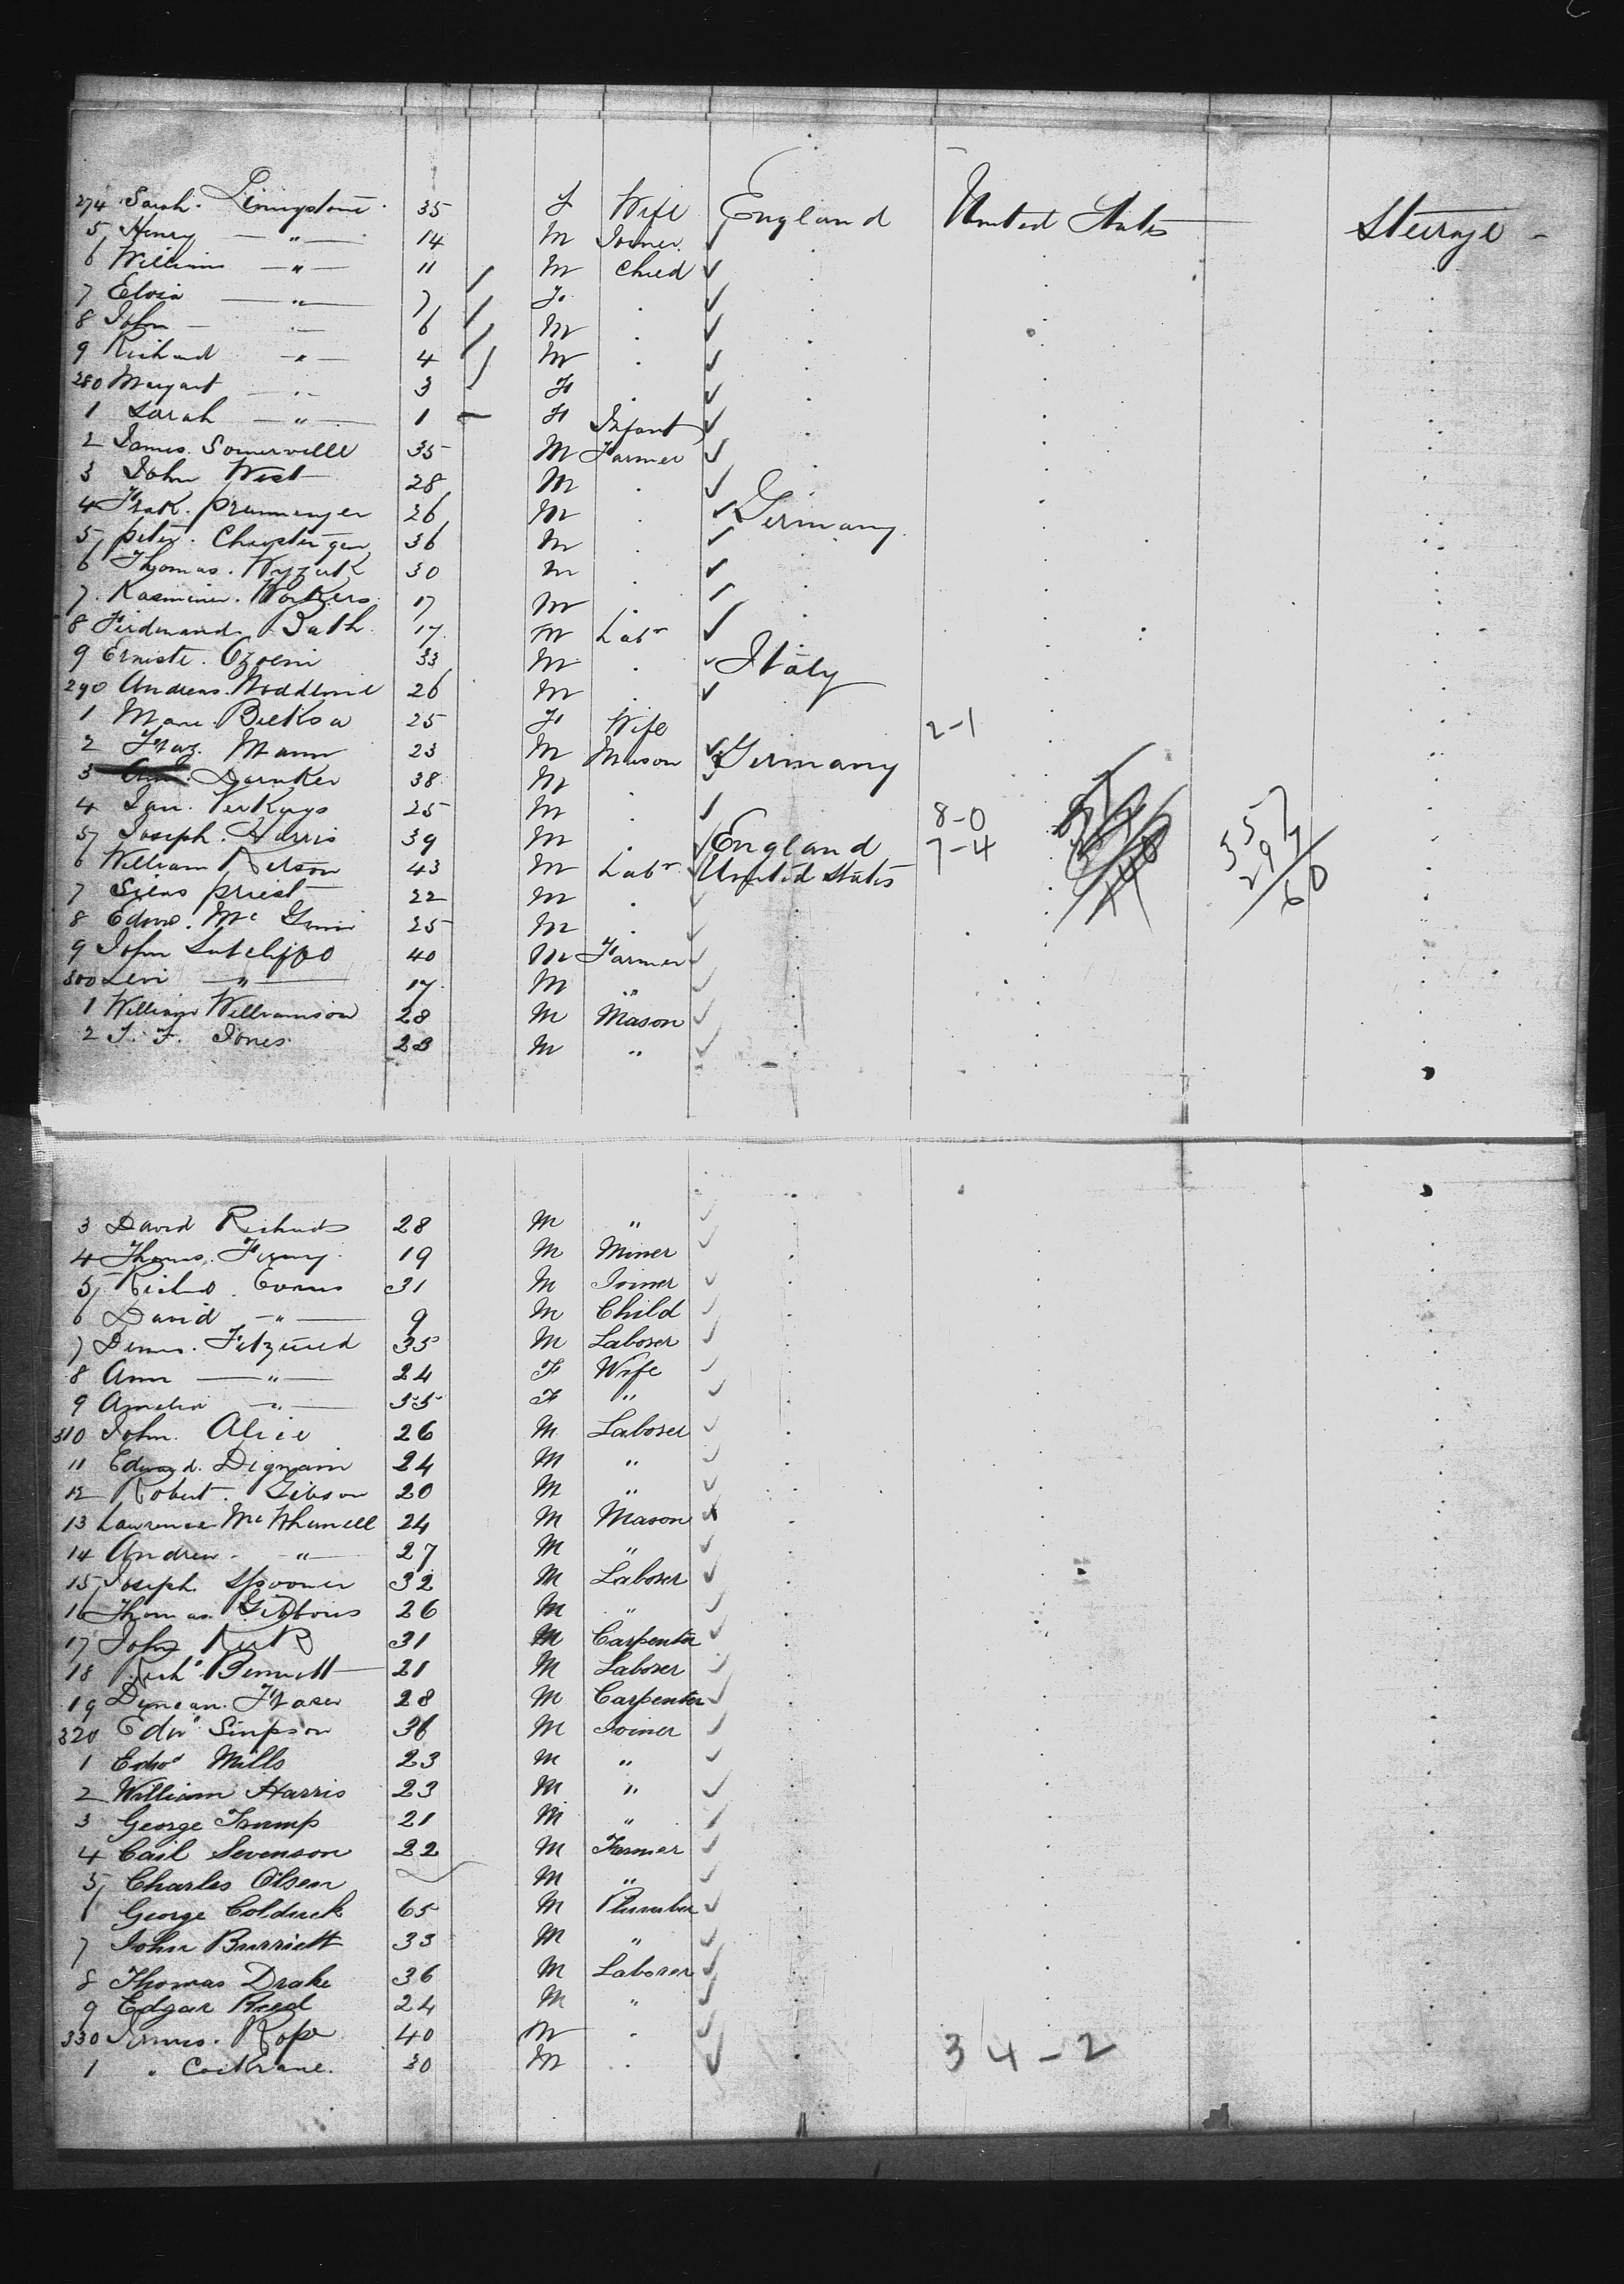 274 Sarah. Livingstone. 35 F Wife England United States Steerage -
5 Henry — " — 14 M Joiner ✓
6 William — " — 11 / M Child ✓
7 Elvia — " — 7 / F . ✓
8 John — " — 6 / M . ✓
9 Richard — " — 4 / M . ✓
280 Margart — " — 3 / F . ✓
1 Sarah — " — 1 – F Infant ✓
2 James. Somerville 35 M Farmer ✓
3 John West 28 M . ✓
4 26 M . ✓ Germany
5 Peter. 36 M . ✓
6 Thomas. 30 M . ✓
7 17 M . ✓
8 Ferdinand. Bath 17 M Labr ✓
9 Erniste. 33 M . ✓ Italy
290 Andreas. 26 M . ✓
1 Mare. Bielksa 25 F Wife 2-1
2 Mann 23 M Mason ✓ Germany
3 Darnker 38 M . ✓
4 Jan. Verkuys 25 M . ✓ 8-0
5 Joseph. Harris 39 M . ✓ England 7-4 357
6 William Nelson 43 M Labr ✓ United States 297
7 Silas Priest 22 M . ✓ 60
8 Edmd. Mc 25 M . ✓
9 John Sutcliffe 40 M Farmer ✓
300 Levi — " — 17 M " ✓
1 William Williamson 28 M Mason ✓
2 T. F. Jones 28 M " ✓
3 David Richards 28 M " ✓
4 Thomas. 19 M Miner ✓
5 Richd. Evans 31 M Joiner ✓
6 David — " — 9 M Child ✓
7 35 M Laborer ✓
8 Ann — " — 24 F Wife ✓
9 Amelia — " — 55 F " ✓
310 John. Alice 26 M Laborer ✓
11 Edward. Dignam 24 M " ✓
12 Robert. Gibson 20 M " ✓
13 Lawrence Mc Whannell 24 M Mason ✓
14 Andrew. — " — 27 M " ✓
15 Joseph Spooner 32 M Laborer ✓
16 Thomas Gibbons 26 M " ✓
17 John Kirk 31 M Carpenter ✓
18 Richd. Bennett 21 M Laborer ✓
19 Duncan. Fraser 28 M Carpenter ✓
320 Edwd Simpson 36 M Joiner ✓
1 Edwd Mills 23 M " ✓
2 William Harris 23 M " ✓
3 George Trump 21 M " ✓
4 Carl Sevenson 22 M Farmer ✓
5 Charles Olsen M " ✓
6 George Colduck 65 M Plumber ✓
7 John Burriett 33 M " ✓
8 Thomas Drake 36 M Laborer ✓
9 Edgar Reed 24 M " ✓
330 James. Rope 40 M . ✓
1 " Cockrane. 30 M . ✓ 34-2